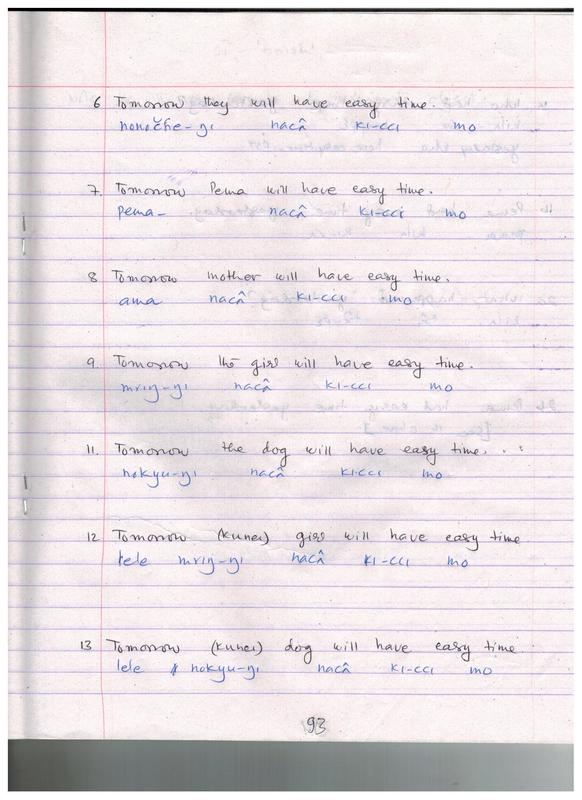 6 Tomorrow they will have easy time.
nonočhe-ŋi nacâ ki-cci mo
7. Tomorrow Pema will have easy time.
pema- nacâ ki-cci mo
8 Tomorrow mother will have easy time.
ama nacâ ki-cci mo
9. Tomorrow the girl will have easy time.
mriŋ-ŋi nacâ ki-cci mo
11. Tomorrow the dog will have easy time.
nokyu-ŋi nacâ ki-cci mo
12 Tomorrow (kunei) girl will have easy time
lele mriŋ-ŋi nacâ ki-cci mo
13 Tomorrow (kunei) dog will have easy time
lele nokyu-ŋi nacâ ki-cci mo
93